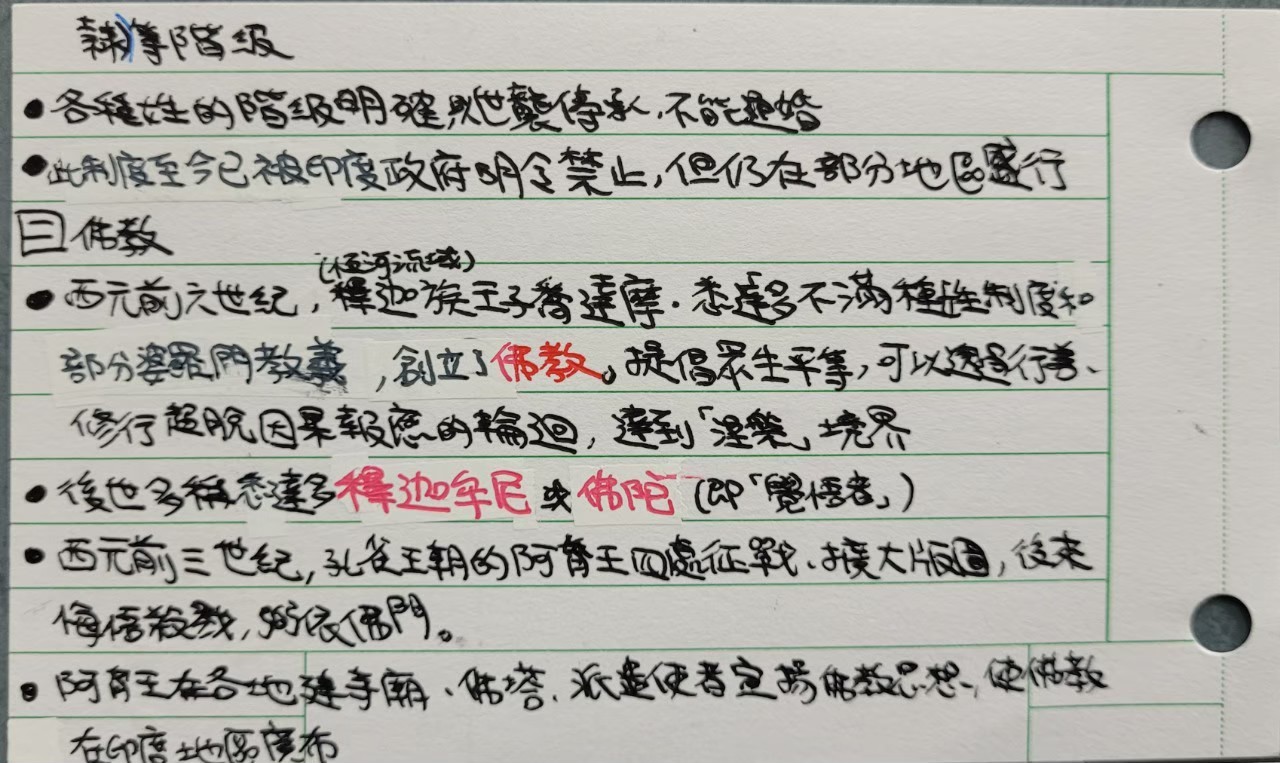 隸等階級
• 各種姓的階級明確則世襲傳承,不能通婚
• 此制度至今已被印度政府明令禁止,但仍在部分地區盛行
三 佛教
(恆河流域)
• 西元前六世紀,釋迦族王子喬達摩·悉達多不滿種姓制度和
部分婆羅門教義,創立了佛教。提倡眾生平等,可以透過行善、
修行超脫因果報應的輪迴,達到「涅槃」境界
• 後世多稱悉達多釋迦牟尼或佛陀(即「覺悟者」)
• 西元前三世紀,孔雀王朝的阿育王四處征戰、擴大版圖,後來
悔悟殺戮,皈依佛門。
• 阿育王在各地建寺廟、佛塔、派遣使者宣揚佛教思想,使佛教
在印度地區廣布